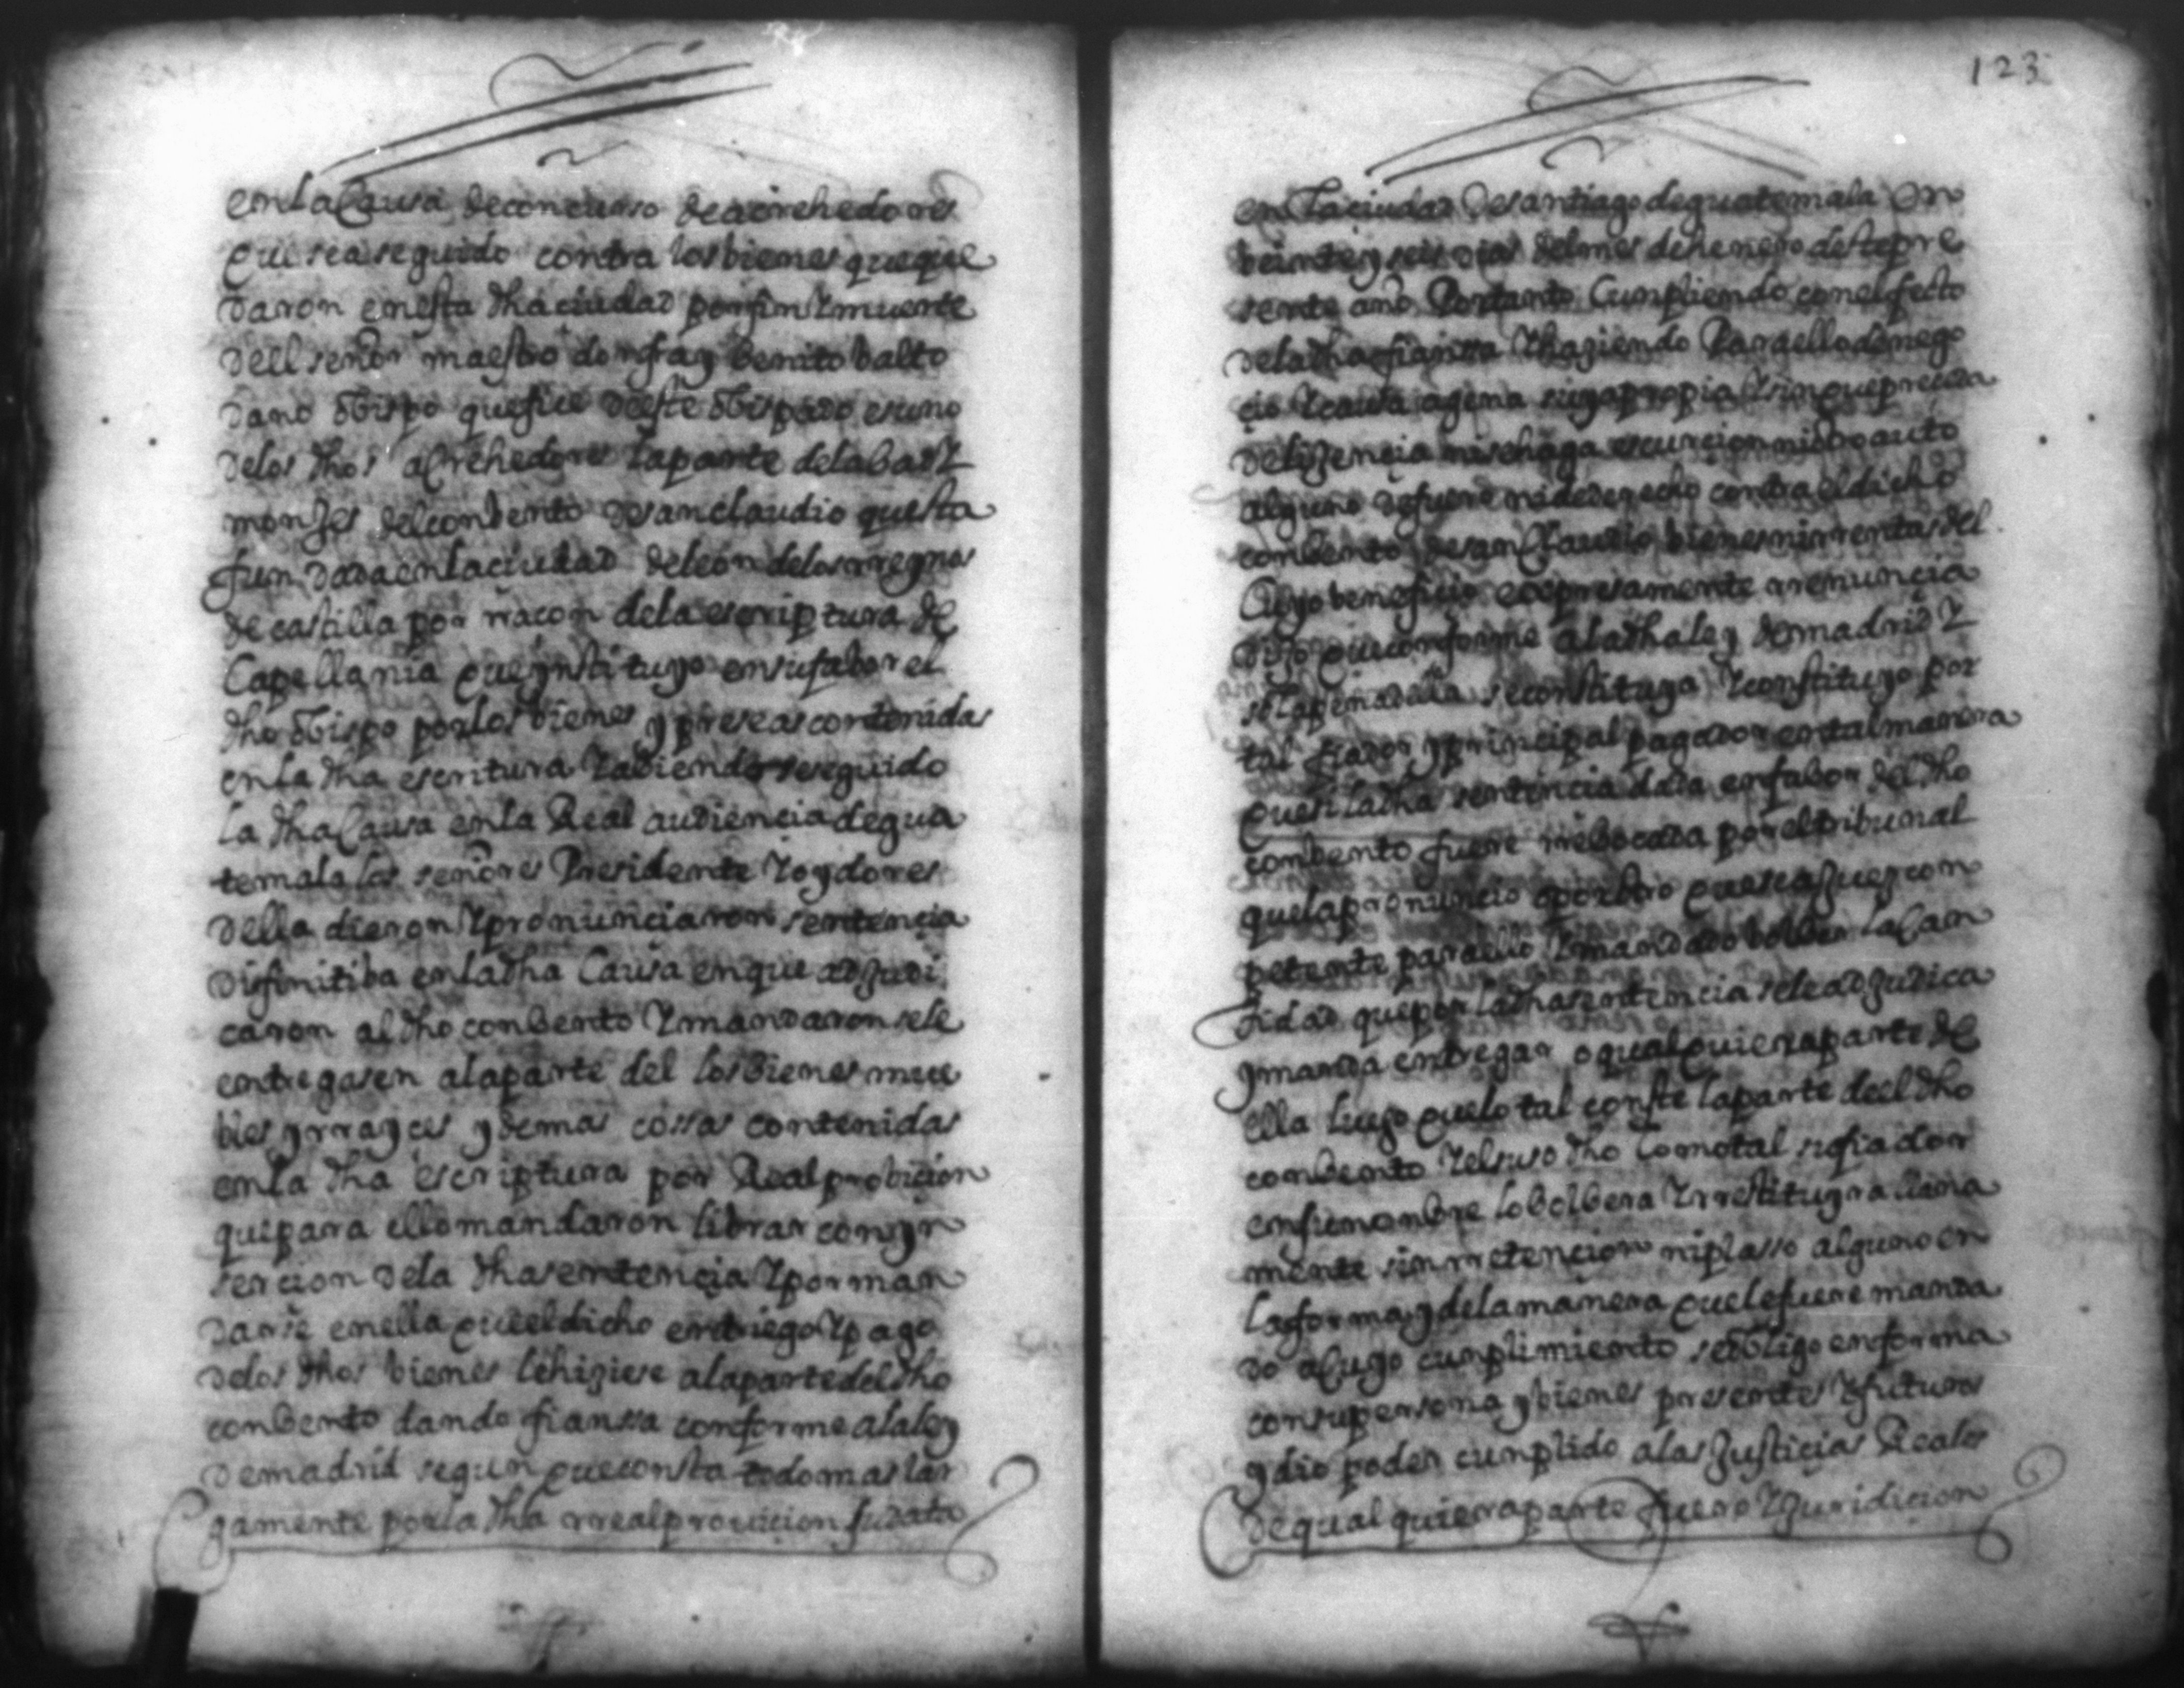 en la Causa de concurso de acrehedores
que se a seguido contra los bienes que que
daron en esta dha ciudad por fin Y muerte
dell señor maestro don fray benito balto
dano obispo que fue deste obispado es uno
de los dhos aCrehedores la parte del abad Y
monJes del conbento de san claudio questa
fundada en la ciudad de leon de los rreynos
de castilla por rraçon de la escriptura de
Capellania que ynstituyo en su fabor el
dho obispo por los bienes y preseas contenidas
en la dha escritura Y abiendose seguido
la dha Causa en la Real audiencia de gua
temala los señores Presidente Y oydores
della dieron Y pronunciaron sentençia
difinitiba en la dha Causa en que adJudi
caron al dho conbento Y mandaron se le
entregasen a la parte del los bienes mue
bles y rrayçes y demas cossas contenidas
en la dha escriptura por Real probiçion
que para ello mandaron librar con yn
sercion de la dha sentençia Y por man
darse en ella que el dicho entriego Y pago
de los dhos bienes le hiziese a la parte del dho
conbento dando fianssa conforme a la ley
de madrid segun que consta todo mas lar
gamente por la dha rreal provicion su data
123
en la ciudad de santiago de guatemala en
beinte y seis dias del mes de henero deste pre
sente año Por tanto Cunpliendo con el efecto
de la dha fianssa Y haziendo Para ello de nego
çio Y causa agena suya propia Y sin que preceda
deliJençia ni se haga escurçion ni otro auto
alguno de fuero ni de derecho contra el dicho
conbento de san Claudio bienes ni rrentas del
Cuyo beneficio expresamente rrenunçia
dijo que conforme a la dha ley de madrid Y
so la pena della se constituya Y constituyo por
tal fiador y principal pagador en tal manera
que si la dha sentencia dada en fabor del dho
conbento fuere rrebocada por el tribunal
que la pronuncio o por otro que sea Juez con
petente para ello Y mandado bolber la Can
tidad que por la dha sentencia se le adJudica
y manda entregar o qualquiera parte de
ella luego que lo tal conste la parte del dho
conbento Y el suso dho Como tal su fiador
en su nonbre lo bolbera Y rrestituyra llana
mente sin rretencion ni plasso alguno en
la forma y de la manera que le fuere manda
do a Cuyo cunplimiento se obligo en forma
con su persona y bienes presentes Y futuros
y dio poder cunplido a las Justiçias Reales
de qualquiera parte fuero Y Juridiçion